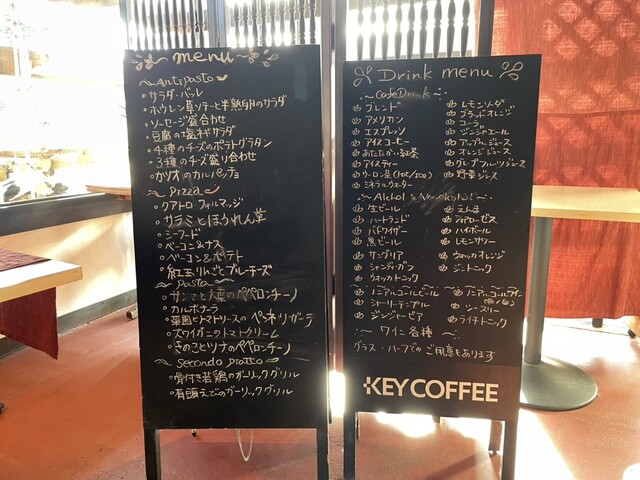 menu
Antipasto
・サラダ・バル
・ホウレン草ソテーと半熟卵のサラダ
・ソーセージ盛合わせ
・豆腐の塩ネギサラダ
・4種のチーズのポテトグラタン
・3種のチーズ盛り合わせ
・カツオのカルパッチョ
Pizza
・クアトロ フォルマッジ
・サラミとほうれん草
・シーフード
・ベーコン&ナス
・ベーコン&ポテト
・紅玉りんごとブルーチーズ
Pasta
・サンマと大葉のペペロンチーノ
・カルボナーラ
・トマトソースのペンネリガーテ
・ズワイガニのトマトクリーム
・きのことツナのペペロンチーノ
secondo piatto
・骨付き若鶏のガーリックグリル
・有頭えびのガーリックグリル
Drink menu
Cafe Drink
ブレンド
アメリカン
エスプレッソ
アイスコーヒー
あたたかい紅茶
アイスティー
ウーロン茶(Hot/Ice)
ミネラルウォーター
レモンソーダ
ブラッドオレンジ
コーラ
ジンジャエール
アップルジュース
オレンジジュース
グレープフルーツジュース
野菜ジュース
生ビール
ハートランド
バドワイザー
黒ビール
サングリア
シャンディガフ
ウォッカトニック
ハイボール
レモンサワー
ウォッカオレンジ
ジントニック
ノンアルコールビール
シャーリーテンプル
ジンジャービア
ノンアルコールワイン
ライチトニック
ワイン各種
グラス・ハーフでのご用意もあります
KEY COFFEE